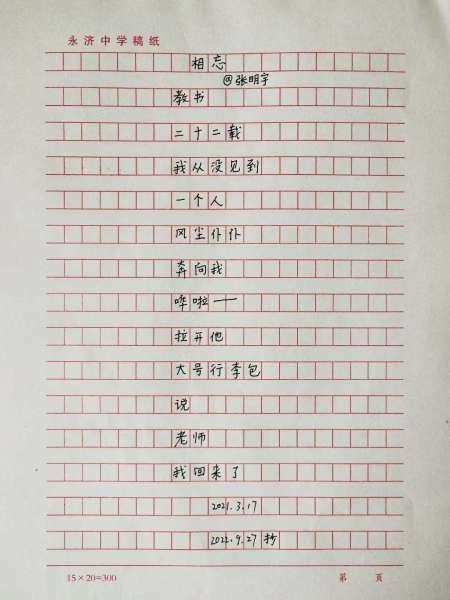 永济中学稿纸
相忘
@张明宇
教书
二十二载
我从没见到
一个人
风尘仆仆
奔向我
哗啦——
拉开他
大号行李包
说
老师
我回来了
2021.3.17
2022.9.27抄
15×20=300
第 页